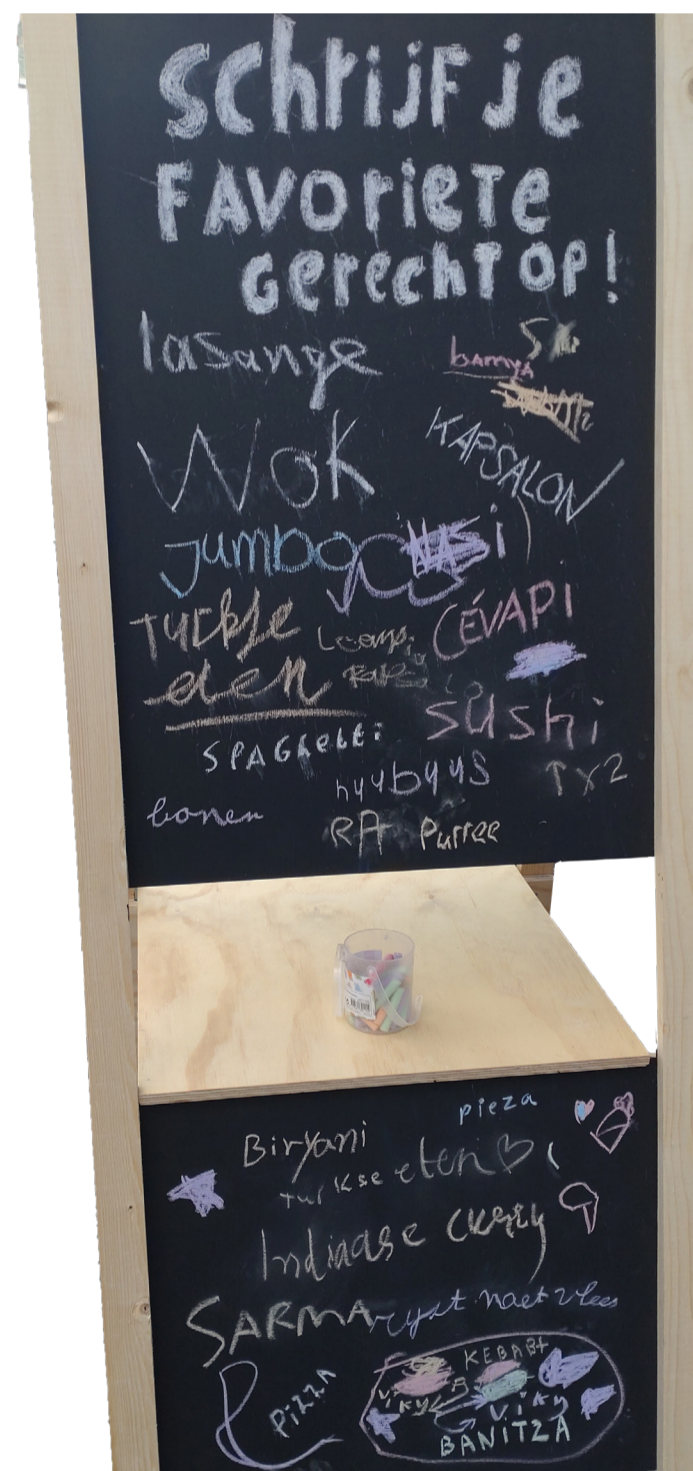 Schrijf je
FAVorieTe
GerechT OP!
lasange
bamya
Wok
KAPSALON
Jumbo
CÉVAPI
Turkse
sushi
SPAGhetti
hyybyyS
TX2
bonen
RA Purree
pieza
Biryani
turkse eten
Indiaase curry
SARMA
ryst met vlees
KEBAB
PiZZA
ViKy
ViKy
BANITZA